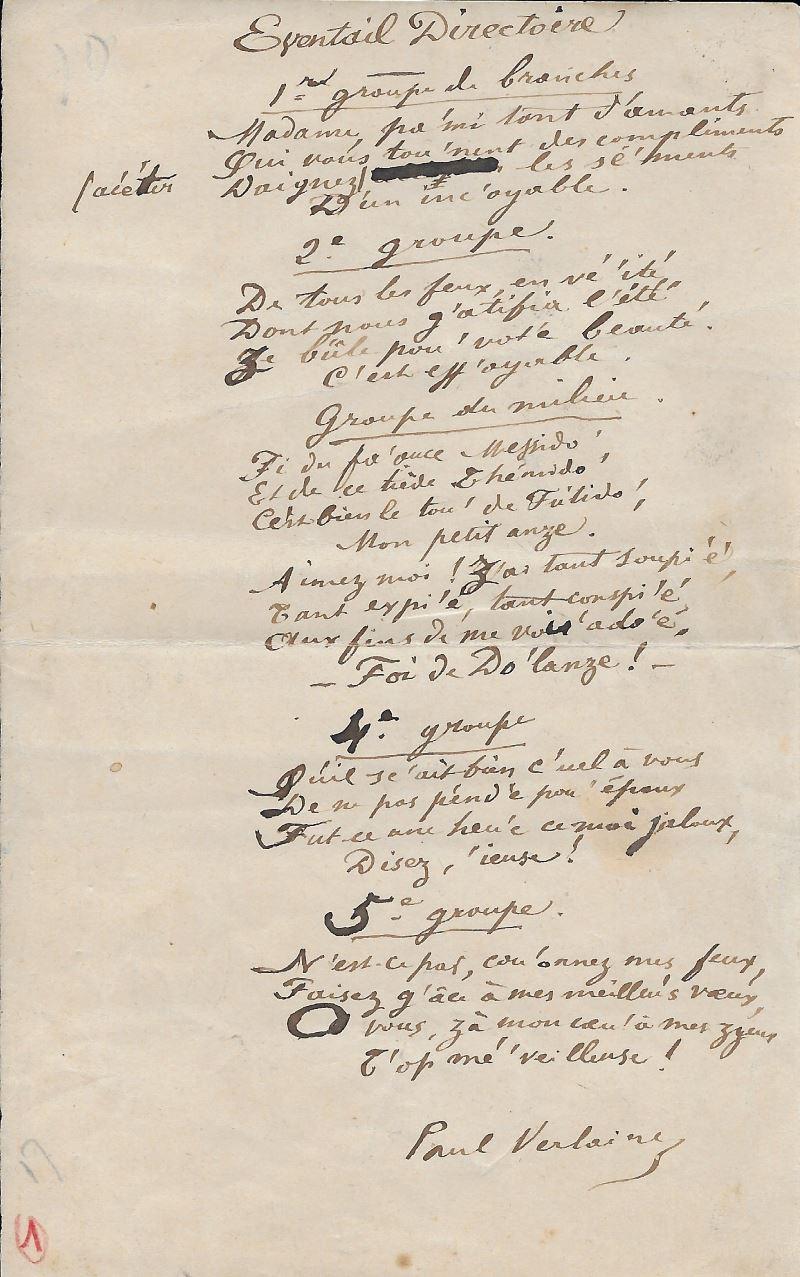 Eventail Directoire
1re groupe de branches
Madame, pa'mi tant d'amants
Qui vous tou'nent des compliments
/acéter Daignez/ les se'ments
D'un inc'oyable.
2e groupe.
De tous les feux, en vé'ité,
Dont nous g'atifia l'été
Ze bûle pou' vot'e beauté.
C'est eff'oyable.
Groupe du milieu.
Fi du fa'ouce Messido',
Et de ce tiède Thémido',
C'est bien le tou' de F'utido',
Mon petit anze.
Aimez moi! Z'ai tant soupi'é,
Tant expi'é, tant conspi'é
Aux fins de me voi' ado'é,
— Foi de Do'lanze! —
4e groupe
Qu'il se'ait bien c'uel à vous
De ne pas pend'e pou' époux
Fut-ce une heu'e ce moi jaloux,
Disez, 'ieuse!
5e groupe.
N'est-ce pas, cou'onnez mes feux,
Faisez g'âce à mes meilleu's vœux,
O vous, zà mon cœu' à mes zyeux
T'op mé'veilleuse!
Paul Verlaine
1